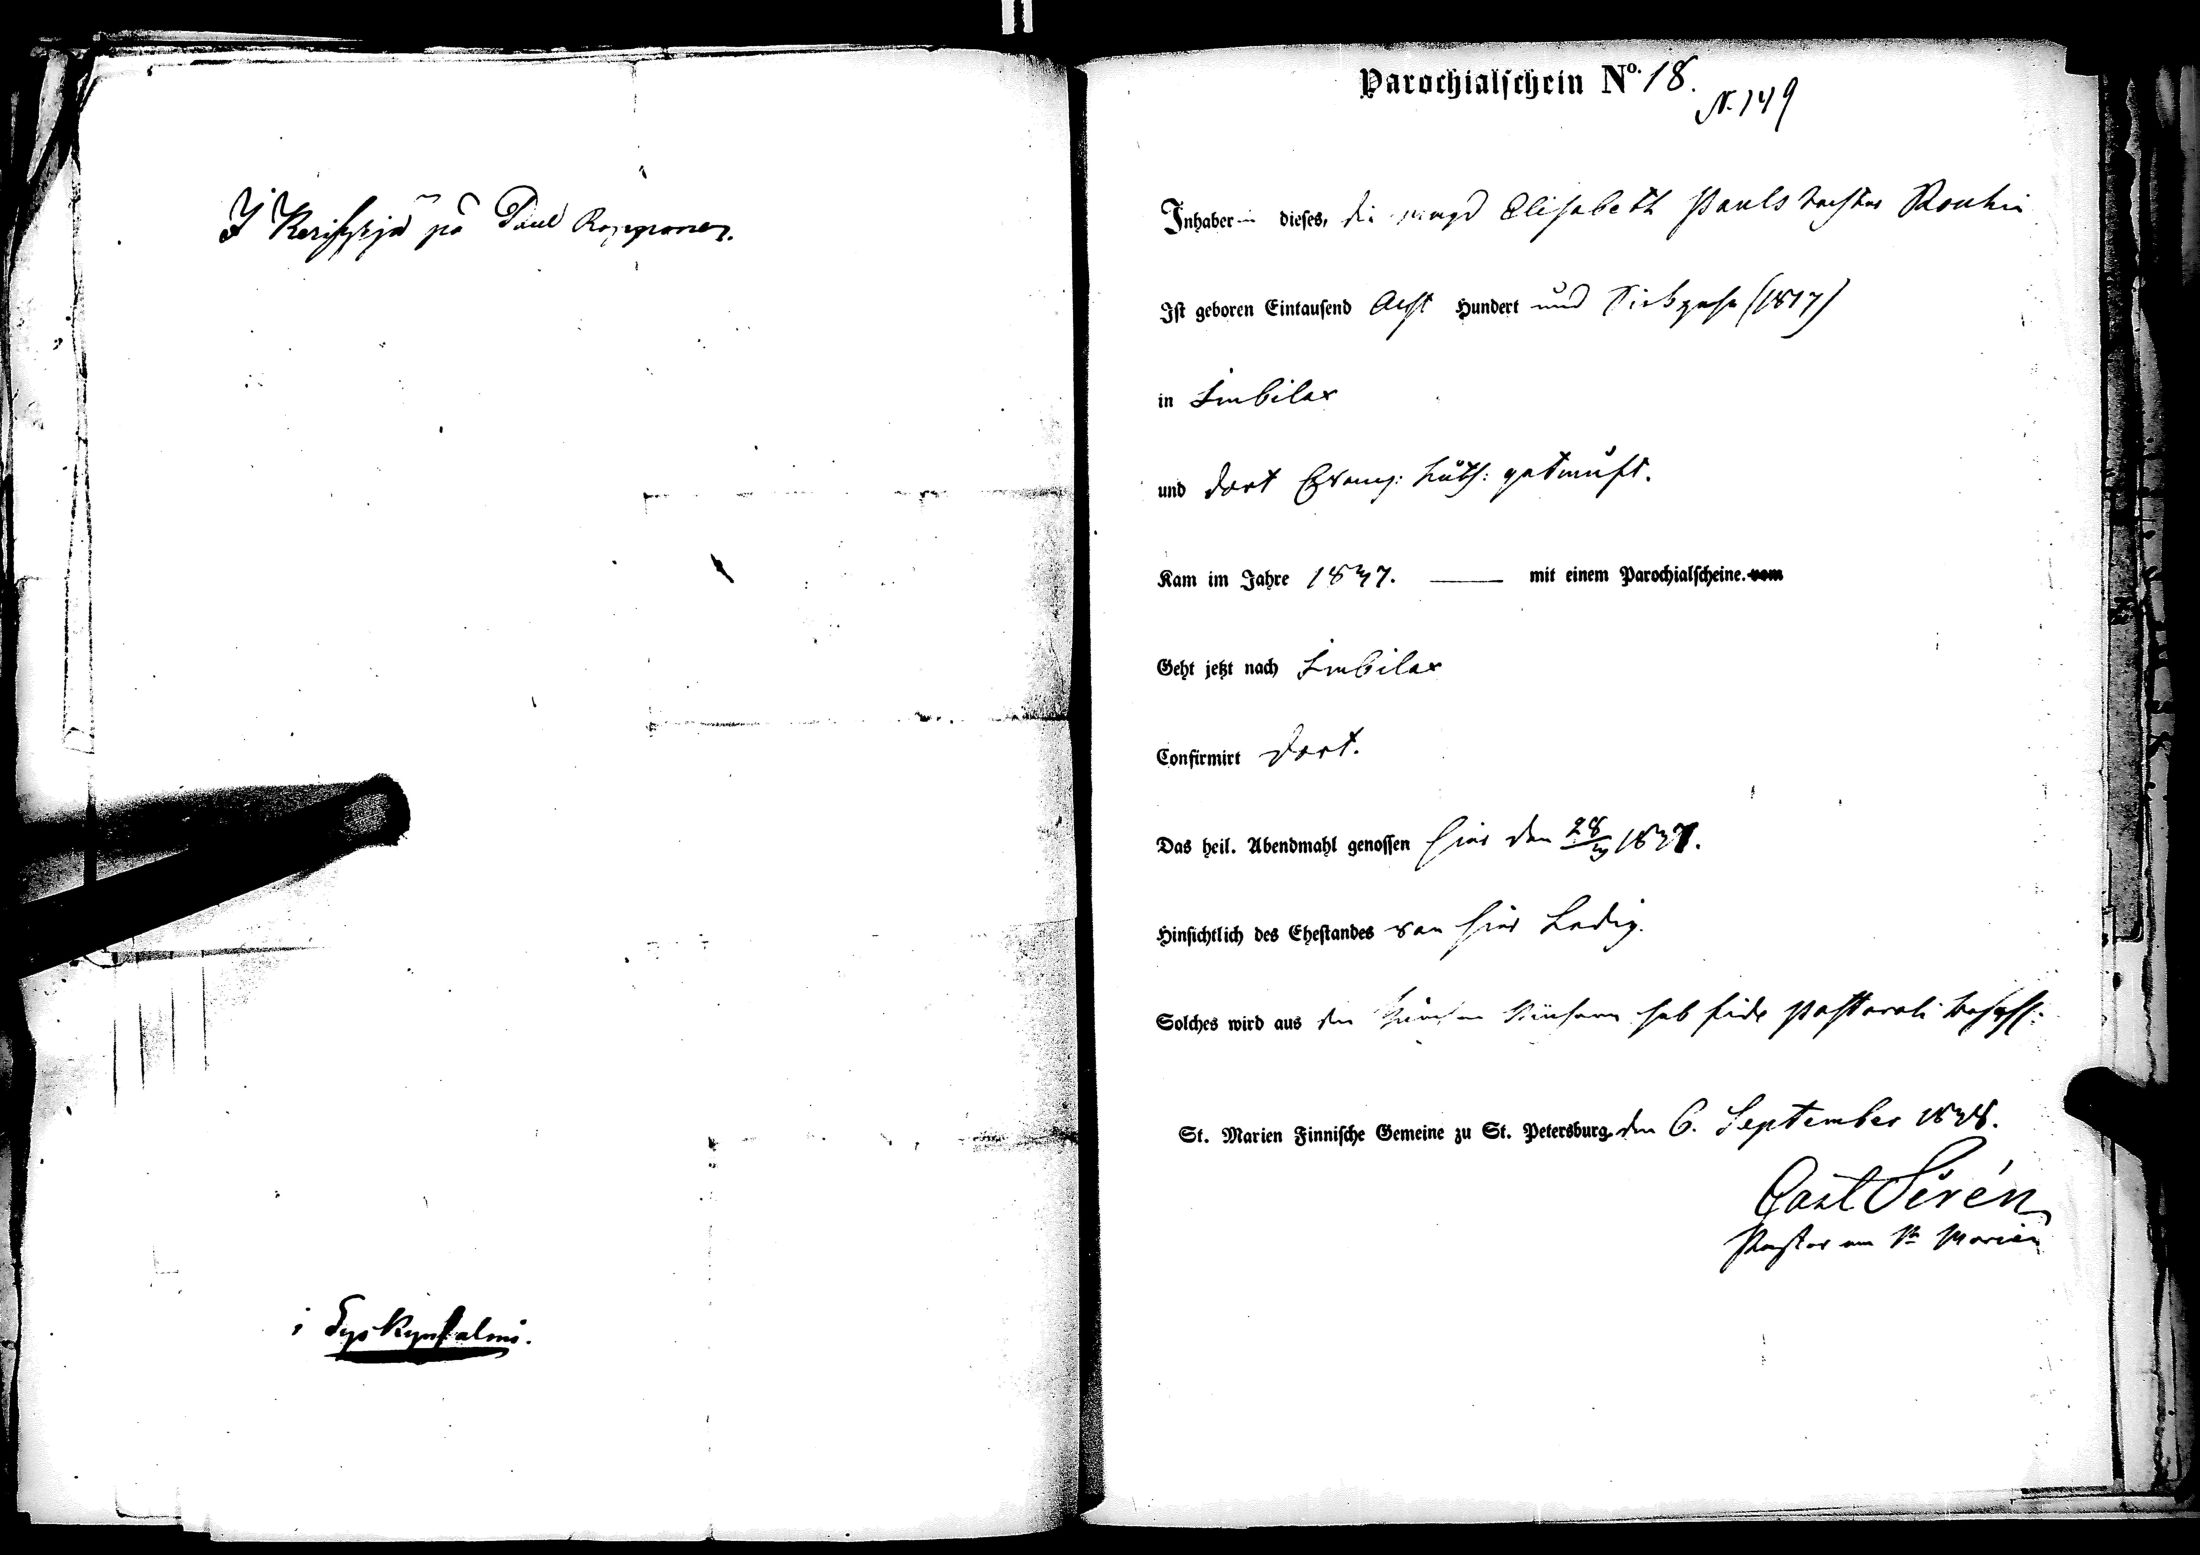 I Kerisyrjä på Paul Ropponen.
i Syskynsalmi.
Parochialschein No. 18.
N. 149
Inhaberin dieses, die Magd Elisabeth Pauls tochter
Ist geboren Eintausend Acht Hundert und Siebzehn (1817)
in Imbilax
und dort Evang: Luth: getauft.
Kam im Jahre 1837. — mit einem Parochialscheine. vom
Geht jetzt nach Imbilax
Confirmirt dort.
Das heil. Abendmahl genossen hier den 28/3 1837.
Hinsichtlich des Ehestandes von hier Ledig.
Solches wird aus den Kirchen Büchern sub fide pastorali
St. Marien Finnische Gemeine zu St. Petersburg, den 6. September 1838.
Carl Sirén
Pastor an St. Marien